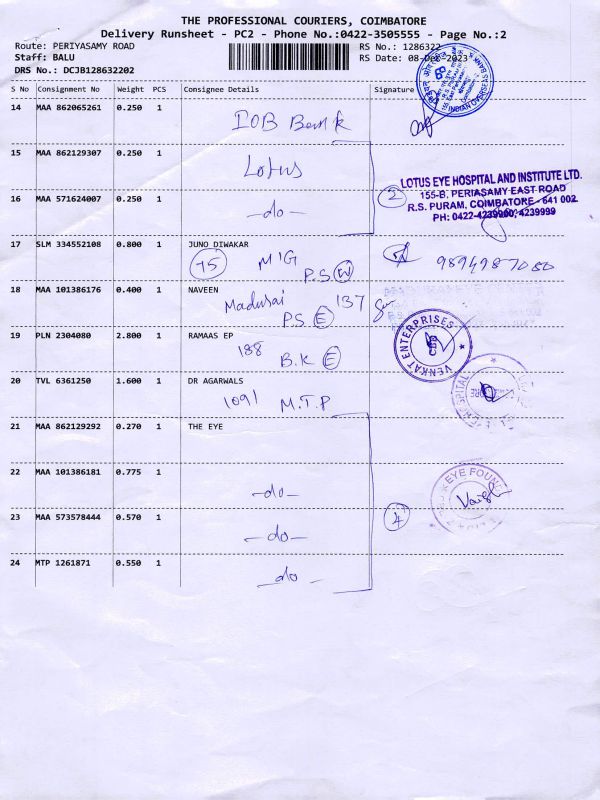 THE PROFESSIONAL COURIERS, COIMBATORE
Delivery Runsheet - PC2 - Phone No.:0422-3505555 - Page No.:2
Route: PERIYASAMY ROAD
RS No.: 1286322
Staff: BALU
RS Date: 08-Dec-2023
DRS No.: DCJB128632202
S No Consignment No Weight PCS Consignee Details Signature
14 MAA 862065261 0.250 1
IOB Bank
INDIAN OVERSEAS BANK
15 MAA 862129307 0.250 1
Lotus
16 MAA 571624007 0.250 1
-do-
2
LOTUS EYE HOSPITAL AND INSTITUTE LTD.
155-B, PERIYASAMY EAST ROAD
R.S. PURAM, COIMBATORE - 641 002
PH: 0422-4239900, 4239999
17 SLM 334552108 0.800 1 JUNO DIWAKAR
75 MIG
P.S W
9894987080
18 MAA 101386176 0.400 1 NAVEEN
Madurai 137
P.S E
19 PLN 2304080 2.800 1 RAMAAS EP
188 B.K E
VENKAT ENTERPRISES
CBE
20 TVL 6361250 1.600 1 DR AGARWALS
1091 M.T.P
EYE HOSPITAL
21 MAA 862129292 0.270 1 THE EYE
22 MAA 101386181 0.775 1
-do-
4
EYE FOUN
23 MAA 573578444 0.570 1
-do-
24 MTP 1261871 0.550 1
-do-